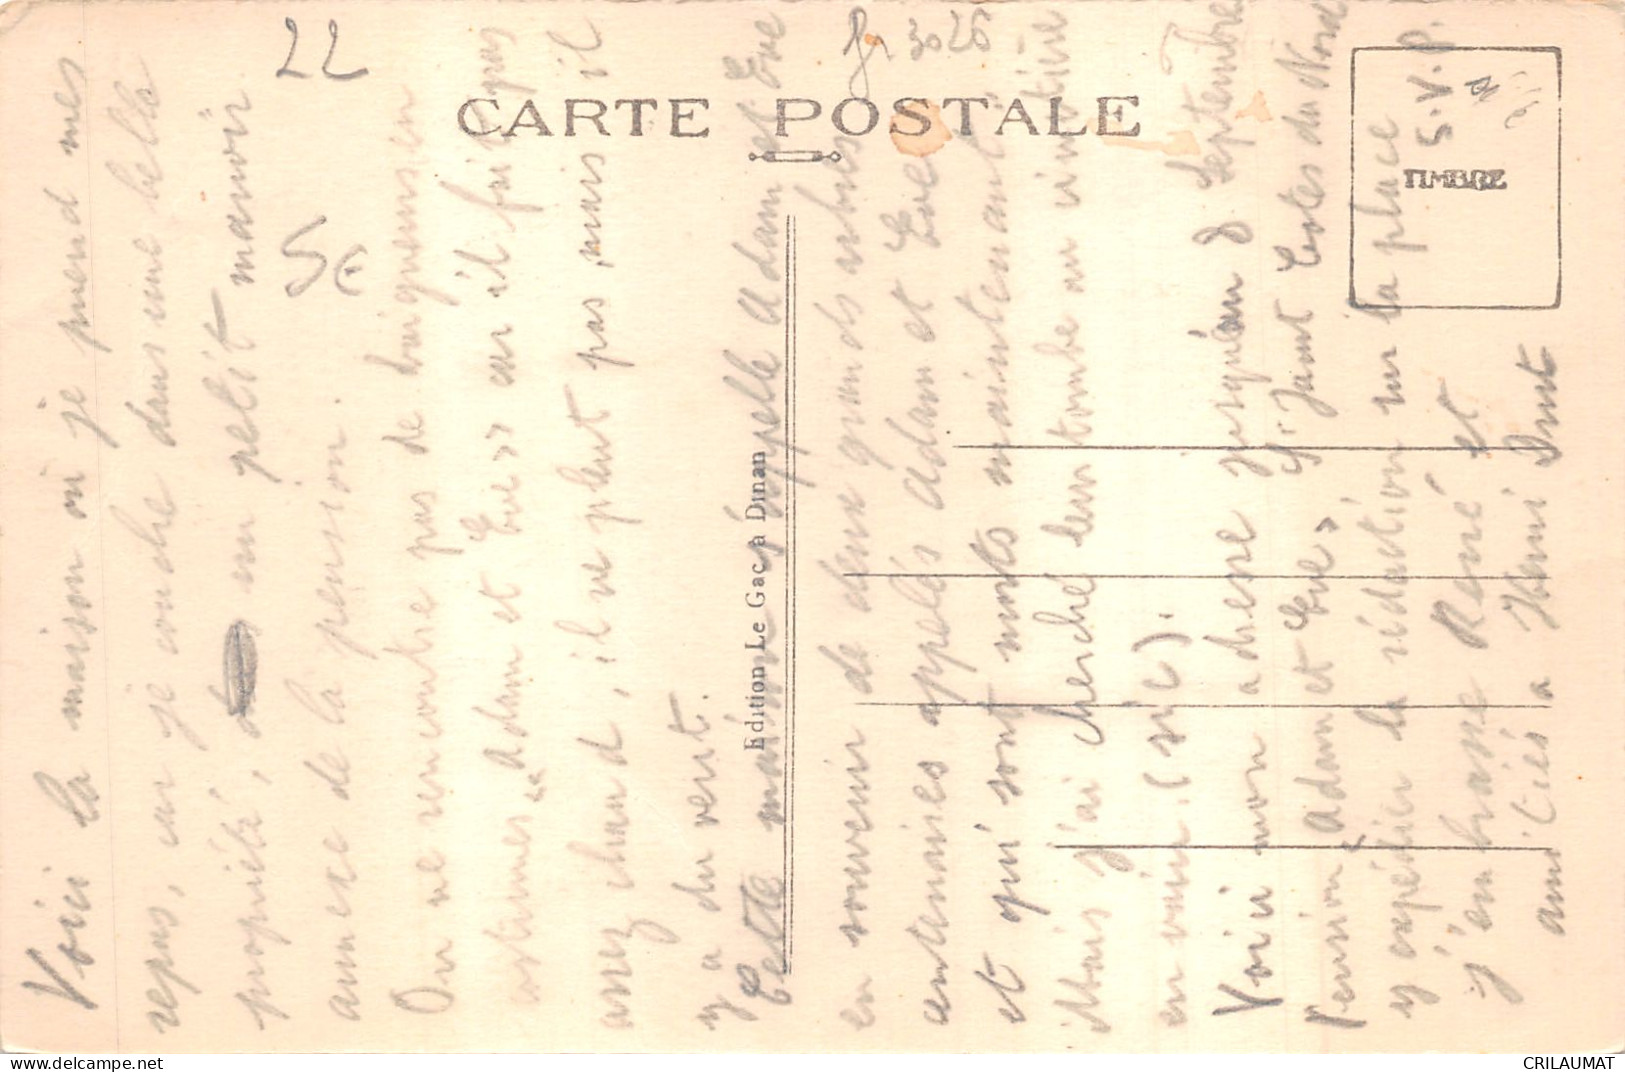 22
fr 3026
CARTE POSTALE
5€
TIMBRE
Edition Le Gac, à Dinan
Voici la maison où je prend mes
repas, car je couche dans une belle
propriété, un petit manoir
annexe de la pension.
On ne rencontre pas de baigneurs en
costumes "Adam et Eve" car il fait pas
assez chaud, il ne pleut pas, mais il
y a du vent.
Cette maison s'appelle Adam et Eve
en souvenir de deux grands arbres
centenaires appelés Adam et Eve
et qui sont morts maintenant.
Mais j'ai cherché leur tombe au cimetière
en vain. (sic).
Voici mon adresse jusqu'au 8 Septembre
Pension "Adam et Eve" St Jacut Costes du Nord
y expédier la rédaction sur la place S.V.P.
j'embrasse René et
amitiés à Henri
CRILAUMAT